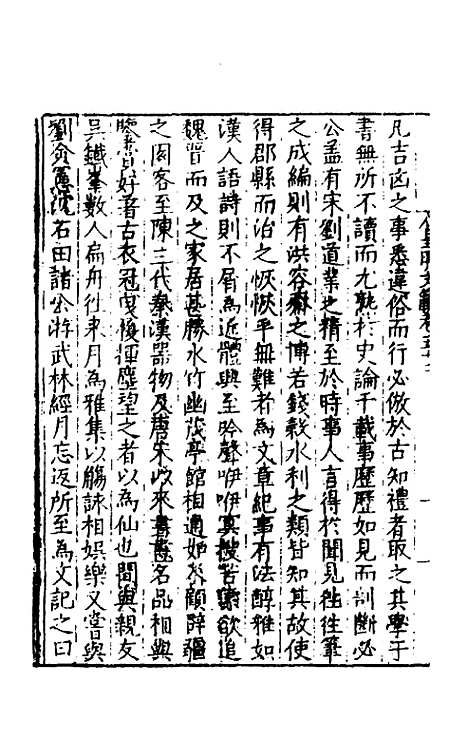 凡吉凶之事悉違俗而行必倣於古知禮者取之其學于
書無所不讀而尤熟於史論千載事歷歷如見而剖斷必
公盖有宋劉道業之精至於時事人言得於聞見徃徃筆
之成編則有洪容齋之博若錢穀水利之類皆知其故使
得郡縣而治之恢恢乎無難者為文章紀事有法醇雅如
漢人語詩則不屑為近體興至吟聲咿咿冥搜苦索欲追
魏晉而及之家居甚勝水竹幽茂亭館相通如入顧辟疆
之圖客至陳三代秦漢器物及唐宋以來書畫名品相與
鑒賞好著古衣冠曳履揮麈望之者以為仙也間與親友
吳鐵峯數人扁舟往來月為雅集以觴詠相娛樂又嘗與
劉僉憲沈石田諸公游武林經月忘返所至為文記之曰